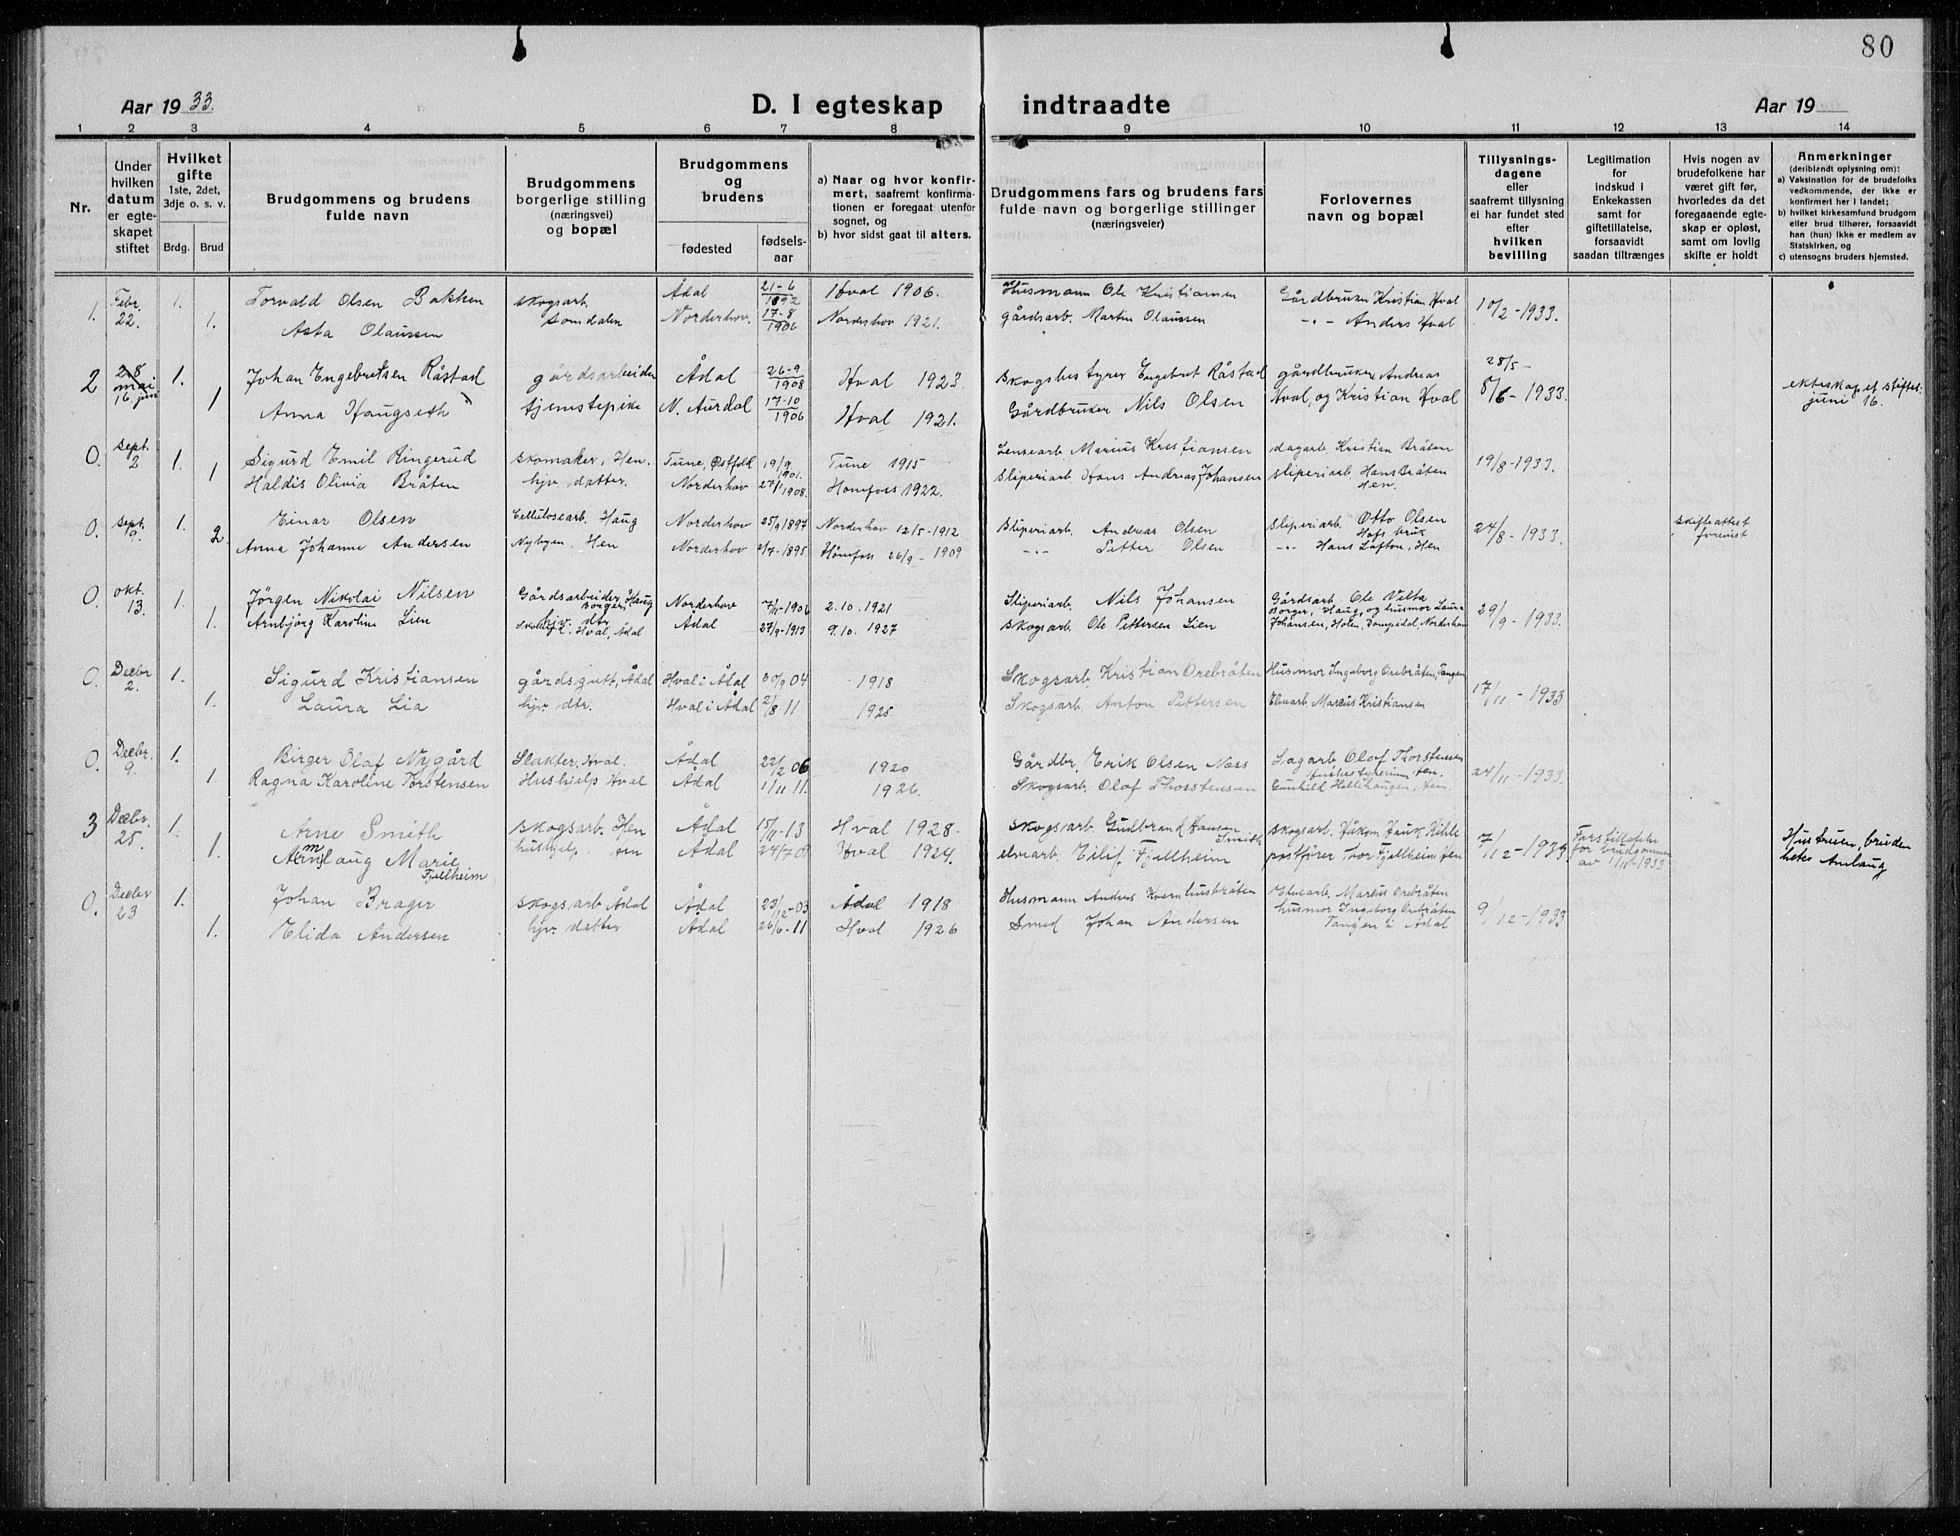 80
Aar 1933.
D. I egteskap indtraadte
Aar 19
1 2 3 4 5 6 7 8 9 10 11 12 13 14
Nr.
Under hvilken datum er egteskapet stiftet
Hvilket gifte
1ste, 2det, 3dje o. s. v.
Brdg. Brud
Brudgommens og brudens fulde navn
Brudgommens borgerlige stilling (næringsvei) og bopæl
Brudgommens og brudens
fødested
fødsels-aar
a) Naar og hvor konfirmert, saafremt konfirmationen er foregaat utenfor sognet, og
b) hvor sidst gaat til alters.
Brudgommens fars og brudens fars
fulde navn og borgerlige stillinger
(næringsveier)
Forlovernes navn og bopæl
Tillysningsdagene eller saafremt tillysning ei har fundet sted efter hvilken bevilling
Legitimation for indskud i Enkekassen samt for giftetillatelse, forsaavidt saadan tiltrænges
Hvis nogen av brudefolkene har været gift før, hvorledes da det foregaaende egteskap er opløst, samt om lovlig skifte er holdt
Anmerkninger
(deriblandt oplysning om):
a) Vaksination for de brudefolks vedkommende, der ikke er konfirmert her i landet;
b) hvilket kirkesamfund brudgom eller brud tilhører, forsaavidt han (hun) ikke er medlem av Statskirken, og
c) utensogns bruders hjemsted.
1. Febr. 22. 1. Torvald Olsen Bakken skogsarb. Ådal 21-6 1892 Hval 1906. Husmann Ole Kristiansen Gårdbruker Kristian Hval 10/2-1933.
1. Asta Olaussen Somdalen Norderhov. 17-8 1906 Norderhov 1921. gårdsarb. Martin Olaussen -"- Anders Hval
2 28 mai 16. juni 1. Johan Engebretsen Råstad gårdsarbeider Ådal 26-9 1908 Hval 1923. Skogsbestyrer Engebret Råstad gårdbrukere Andreas 28/5 - ekteskapet stiftet
1 Anna Haugseth tjenstepike N. Aurdal 17-10 1906 Hval 1921. Gårdbruker Nils Olsen Hval, og Kristian Hval 8/6-1933. juni 16.
0. Sept. 2 1. Sigurd Emil Ringerud skomaker, Hen. Tune, Østfold 19/9 1901. Tune 1915 Lensearb. Marius Kristiansen dagarb. Kristian Bråten 19/8-1933.
1 Haldis Olivia Bråten hjv. datter. Norderhov 27/1 1908. Hønefoss 1922. Sliperiarb. Hans Andreas Johansen sliperiarb. Hans Bråten Hen.
0. Sept. 9. 1. Einar Olsen Cellulosearb. Haug Norderhov 25/9 1897 Norderhov 12/5-1912 Sliperiarb. Andreas Olsen sliperiarb. Otto Olsen Hofs bruk 24/8-1933. skifteattest
2. Anna Johanne Andersen Nybyen, Hen Norderhov 2/7-1895 Hønefoss 26/9-1909 -"- Petter Olsen -"- Hans Løften, Hen forevist
0. okt. 13. 1. Jörgen Nikolai Nilsen Gårdsarbeider Borger, Haug Norderhov 7/11-1906 2.10.1921 Sliperiarb. Nils Johansen Gårdsarb. Ole Velta 29/9-1933.
1. Arnbjørg Karoline Lien hjv. dtr. Hval, Ådal Ådal 27/9-1913 9.10.1927 Skogsarb. Ole Pettersen Lien Borger, Haug, og husmor Laura Johansen, Holen, Norderhov
0. Decbr 2. 1. Sigurd Kristiansen gårdsgutt, Ådal Hval i Ådal 30/9 04 1918 Skogsarb. Kristian Orebråten Husmor Ingeborg Orebråten, Tangen 17/11-1933
1. Laura Lia hjv. dtr. Hval i Ådal 2/8 11 1925 Skogsarb. Anton Pettersen Elvearb Marcus Kristiansen
0. Decbr. 9. 1. Birger Olaf Nygård Slakter, Hval. Ådal 22/2 06 1920 Gårdbr. Erik Olsen Næss Sagarb Olaf Thorstensen 24/11-1933.
1. Ragna Karoline Torstensen Hushjelp Hval Ådal 1/11 11. 1926. Skogsarb. Olaf Thorstensen Gunhild Hellehaugen, Hen.
3 Decbr. 25. 1. Arne Smith skogsarb. Hen Ådal 15/11-13 Hval 1928. skogsarb. Gudbrand Hansen Smith skogsarb. Håkon Hauk Kihle 7/12-1933 Fars tillatelse for brudgommen av 1/12 1933 Hustruen, bruden
1. Amlaug Marie Fjellheim hushjelp Hen Ådal 24/7 08 Hval 1924. elvearb. Eilif Fjellheim postfører Tor Fjellheim Hen heter Amlaug
0. Decbr 23 1. Johan Brager skogsarb Ådal Ådal 23/12-03 Ådal 1918 Husmann Anders Kvernhusbråten Elvearb. Marcus Orebråten 9/12-1933
1. Elida Andersen hjv. datter Ådal 26/6-11 Hval 1926 Smed Johan Andersen husmor Ingeborg Orebråten Tangen i Ådal